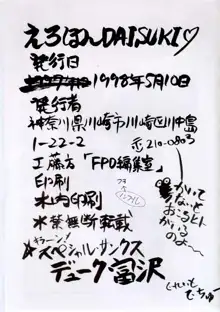 えろほんDAISUKI♡
発行日
1998年5月10日
発行者
神奈川県川崎市川崎区川中島
1-22-2 〒210-0803
工藤方「FPO編集室」
印刷
木内印刷
※禁無断転載
キラーン!
★スペシャル・サンクス
デューク富沢
かいて
ないと
おこるヒト
がいる
のよ〜